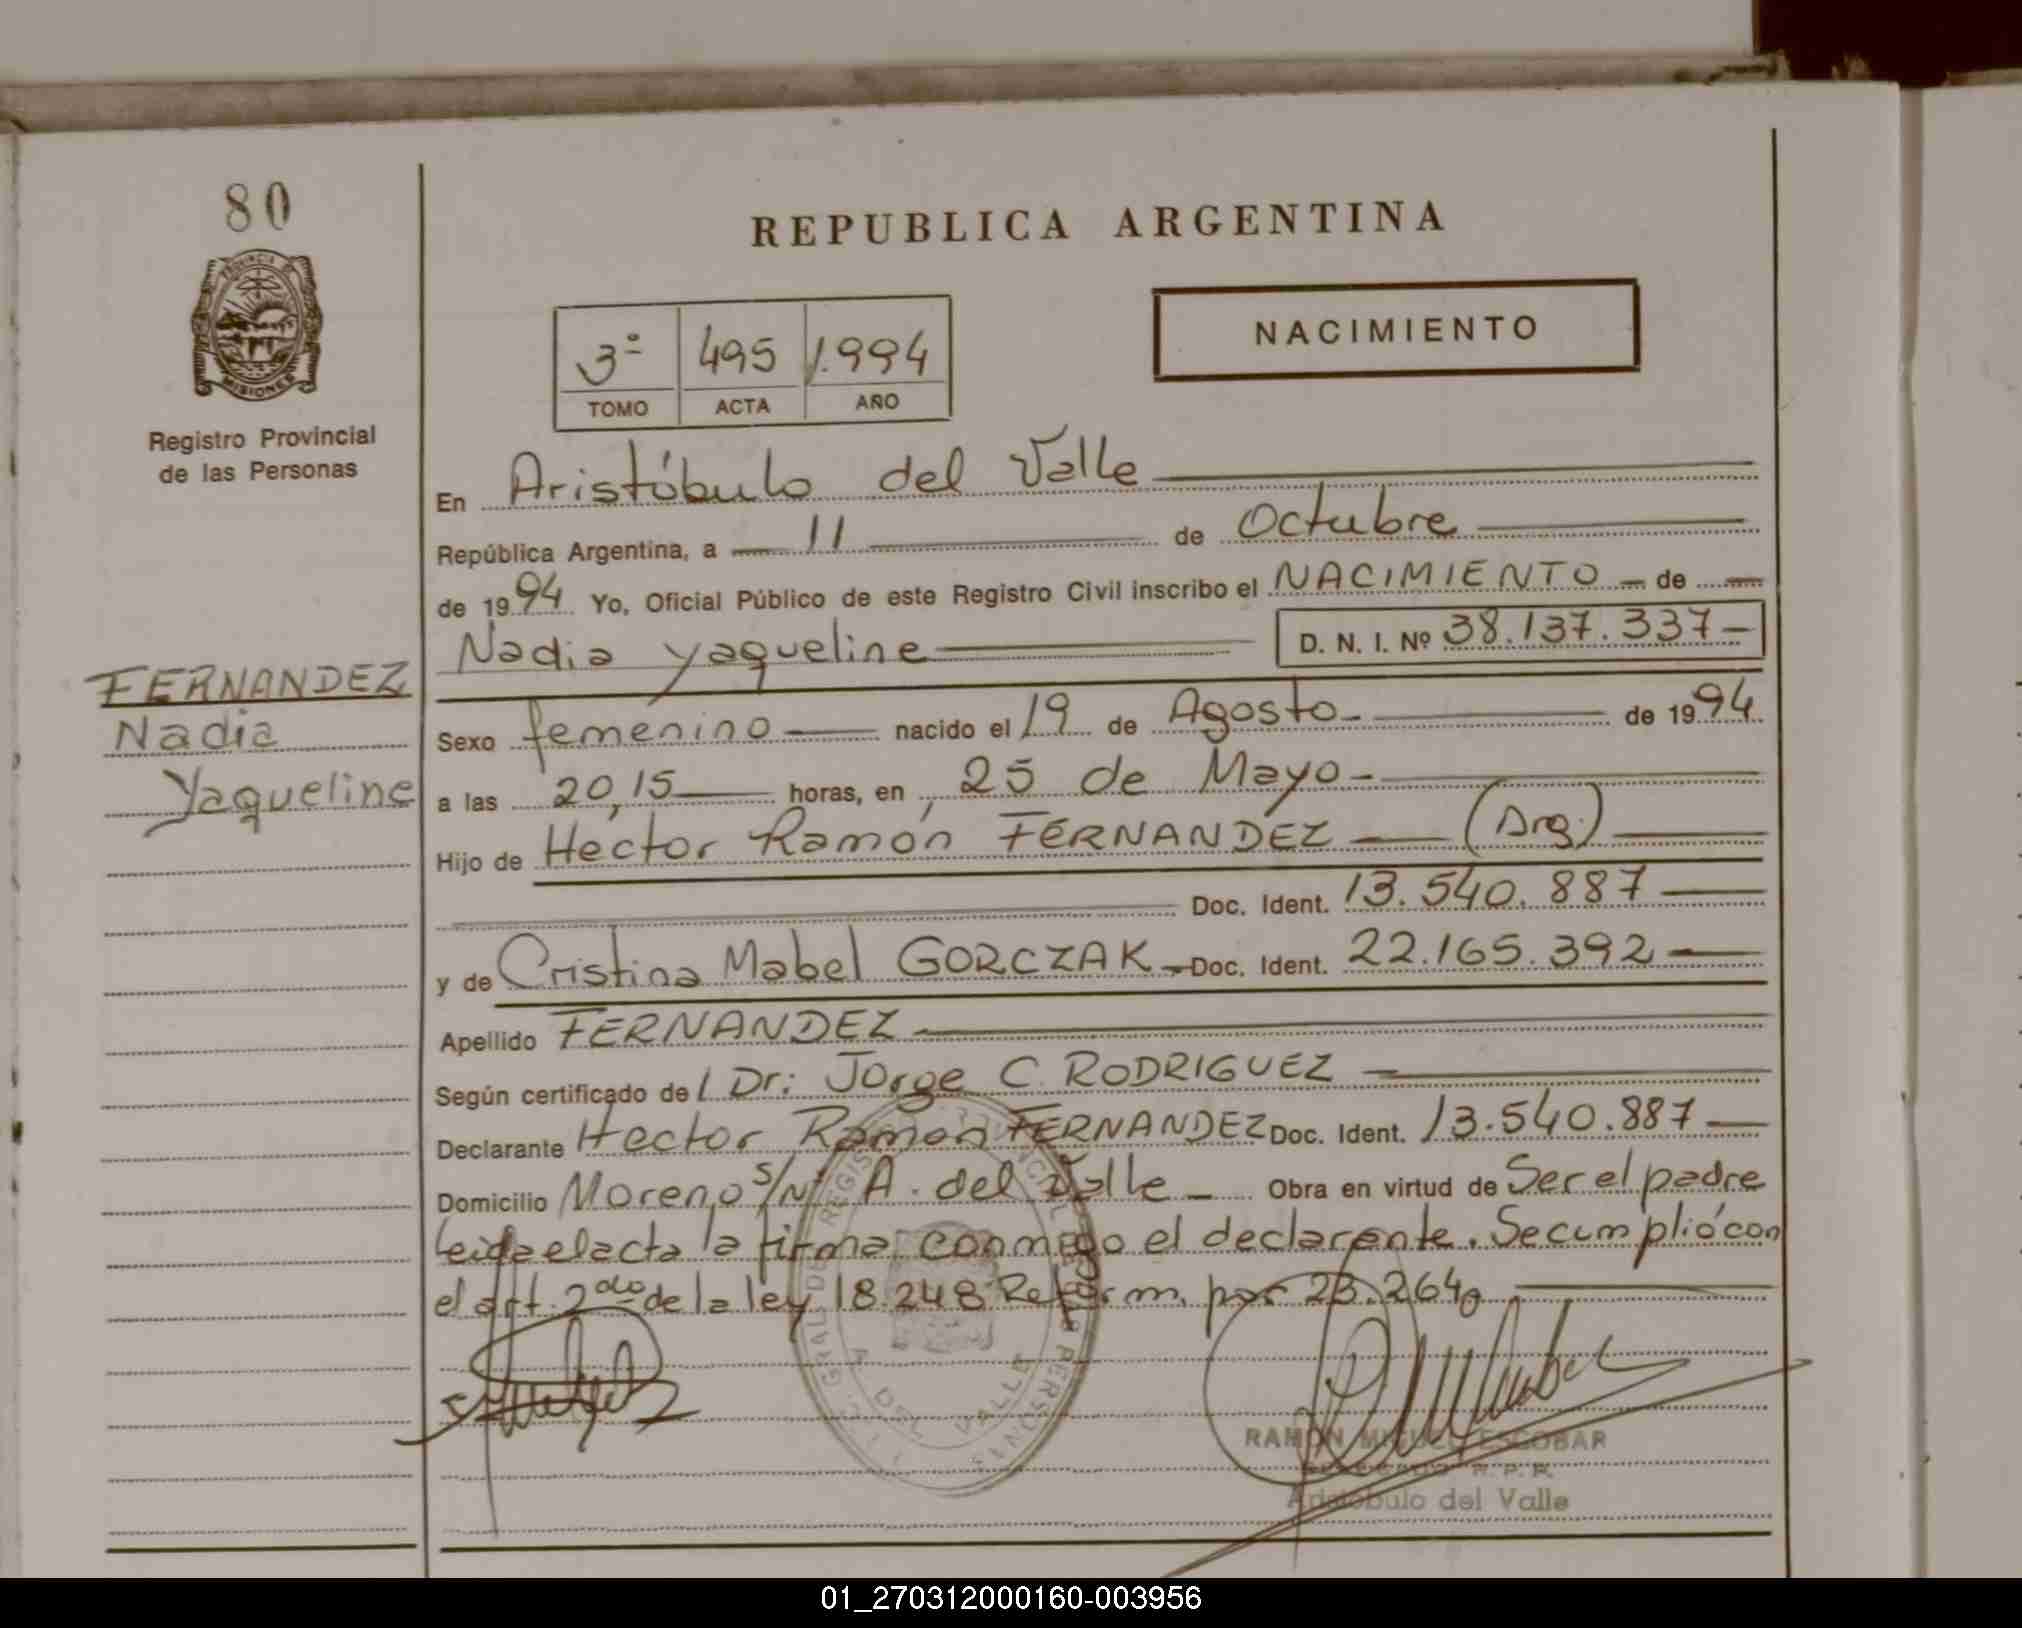 80
PROVINCIA DE
MISIONES
Registro Provincial
de las Personas
REPUBLICA ARGENTINA
NACIMIENTO
3º 495 1.994
TOMO ACTA AÑO
En Aristóbulo del Valle
República Argentina, a 11 de Octubre
de 1994 Yo, Oficial Público de este Registro Civil inscribo el NACIMIENTO de
Nadia Yaqueline D. N. I. Nº 38.137.337
FERNANDEZ
Nadia
Yaqueline
Sexo femenino nacido el 19 de Agosto de 1994
a las 20,15 horas, en 25 de Mayo
Hijo de Hector Ramón FERNANDEZ (Arg.)
Doc. Ident. 13.540.887
y de Cristina Mabel GORCZAK Doc. Ident. 22.165.392
Apellido FERNANDEZ
Según certificado del Dr: Jorge C. RODRIGUEZ
Declarante Hector Ramon FERNANDEZ Doc. Ident. 13.540.887
Domicilio Moreno s/n A. del Valle Obra en virtud de Ser el padre
Leida el acta la firma conmigo el declarante. Se cumplió con
el art. 2do de la ley 18.248 Reform. por 23.264
A DEL VALLE
RAMON MIGUEL ESCOBAR
DELEGADO R. P. P.
Aristóbulo del Valle
01_270312000160-003956